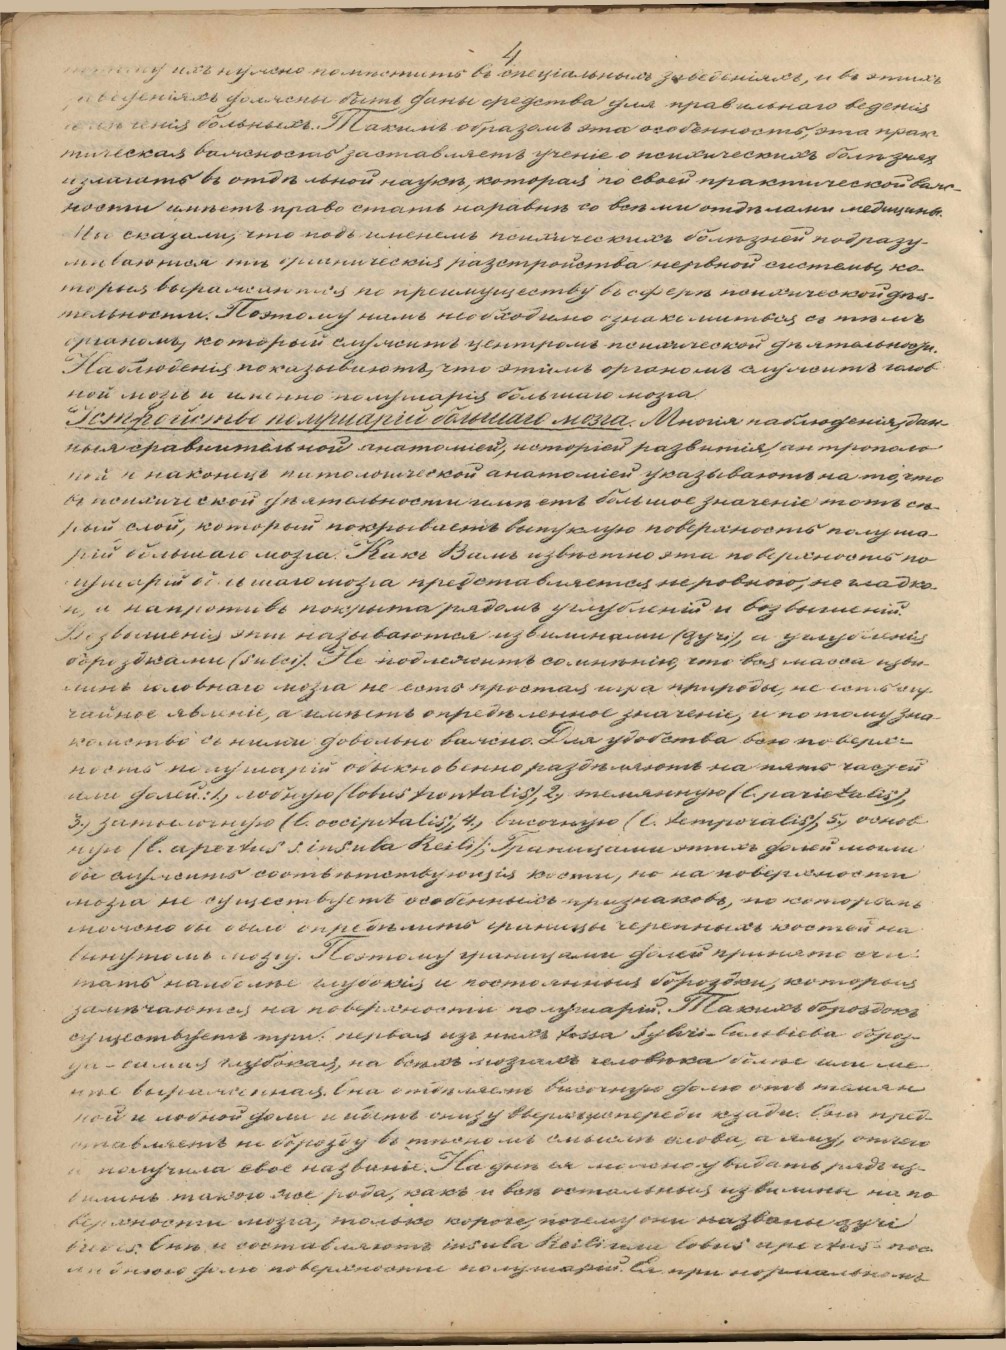 4
ихъ нужно помѣстить въ спеціальныхъ заведеніяхъ, и въ этихъ
заведеніяхъ должны быть даны средства для правильнаго веденія
леченія больныхъ. Такимъ образомъ эта особенность, эта прак
тическая важность заставляетъ ученіе о психическихъ болѣзнях
излагать въ отдѣльной наукѣ, которая по своей практической важ-
ности имѣетъ право стать наравнѣ со всѣми отдѣлами медицины.
Мы сказали, что подъ именемъ психическихъ болѣзней подразу-
мѣваются тѣ органическія разстройства нервной системы, ко-
торыя выражаются по преимуществу въ сферѣ психической дѣя-
тельности. Поэтому намъ необходимо ознакомиться съ тѣмъ
органомъ, который служитъ центромъ психической дѣятельности.
Наблюденія показываютъ, что этимъ органомъ служитъ голов
ной мозгъ и именно полушарія большаго мозга.
Устройство полушарій большаго мозга. Многія наблюденія, дан-
ныя сравнительной анатоміей, исторіей развитія, антрополо
гіей и наконецъ патологической анатоміей указываютъ на то, что
въ психической дѣятельности имѣетъ большое значеніе тотъ сѣ-
рый слой, который покрываетъ выпуклую поверхность полуша-
рій большаго мозга. Какъ Вамъ извѣстно эта поверхность по
лушарій большаго мозга представляется неровною, не гладко-
ю, а напротивъ покрыта рядомъ углубленій и возвышеній.
Возвышенія эти называются извилинами (gyri), а углубленія
бороздками (sulci). Не подлежитъ сомнѣнію, что вся масса изви-
линъ головнаго мозга не есть простая игра природы, не есть слу-
чайное явленіе, а имѣетъ опредѣленное значеніе, и потому зна-
комство съ ними довольно важно. Для удобства всю поверх-
ность полушарій обыкновенно раздѣляютъ на пять частей
или долей: 1, лобную (lobus frontalis), 2, темянную (l. parietalis),
3, затылочную (l. occipitalis), 4, височную (l. temporalis), 5, основ
ную (l. apertus s. insula Reili); Границами этихъ долей могли
бы служить соотвѣтствующія кости, но на поверхности
мозга не существуетъ особенныхъ признаковъ, по которымъ
можно бы было опредѣлить границы черепныхъ костей на
вынутомъ мозгу. Поэтому границами долей принято счи-
тать наиболѣе глубокія и постоянныя бороздки, которыя
замѣчаются на поверхности полушарій. Такихъ бороздокъ
существуетъ три: первая изъ нихъ fossa Sylvii-Сильвіева бороз-
да - самая глубокая, на всѣхъ мозгахъ человѣка болѣе или ме-
нѣе выраженная. Она отдѣляетъ височную долю отъ темян
ной и лобной доли и идетъ снизу вверхъ спереди кзади. Она пред-
ставляетъ не борозду въ тѣсномъ смыслѣ слова, а яму, отчего
и получила свое названіе. На днѣ ея можно увидать рядъ из-
вилинъ такого же рода, какъ и всѣ остальныя извилины на по
верхности мозга, только короче, почему они названы gyri
breves. Онѣ и составляютъ insula Reili или lobus apertus - пос
лѣднюю долю поверхности полушарій. Ея при нормальномъ